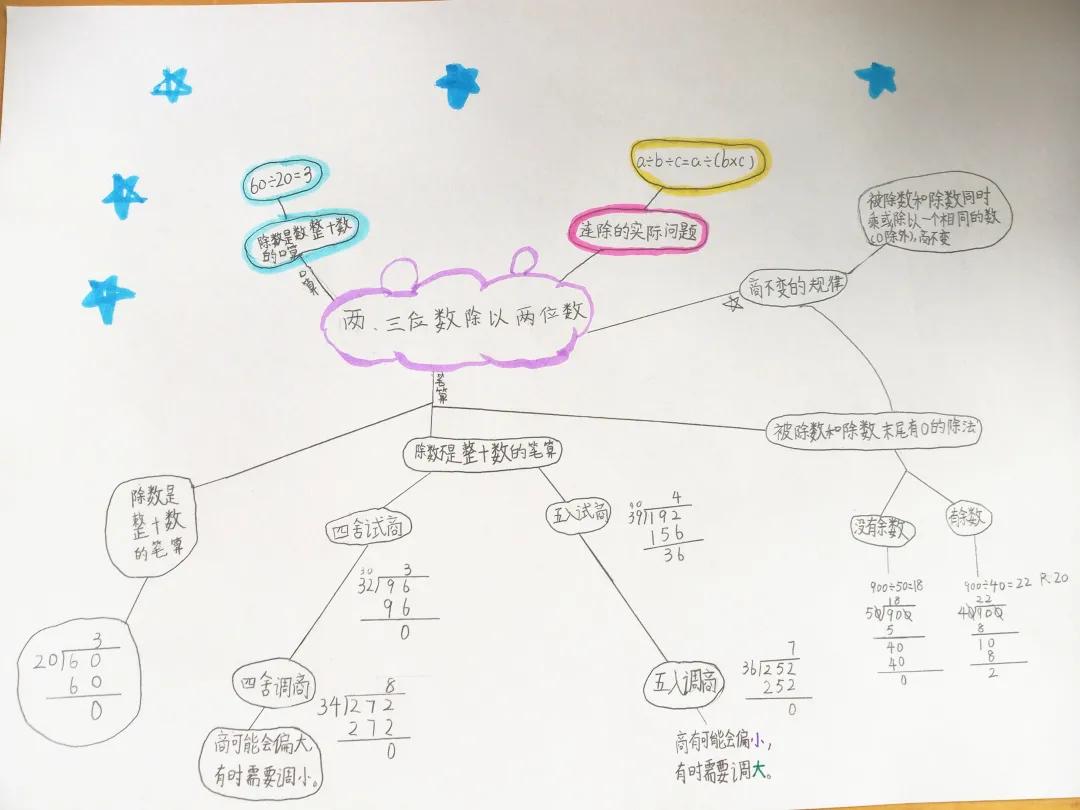 60÷20=3
除数是数整十数
的口算
口算
a÷b÷c=a÷(b×c)
连除的实际问题
被除数和除数同时
乘或除以一个相同的数
(0除外),商不变
商不变的规律
两、三位数除以两位数
笔算
除数是
整十数
的笔算
3
20)60
60
0
除数不是整十数的笔算
四舍试商
30
3
32)96
96
0
四舍调商
8
34)272
272
0
商可能会偏大
有时需要调小。
五入试商
40
4
39)192
156
36
五入调商
7
36)252
252
0
商有可能会偏小,
有时需要调大。
被除数和除数末尾有0的除法
没有余数
900÷50=18
18
50)900
5
40
40
0
有余数
900÷40=22 R:20
22
40)900
8
10
8
2